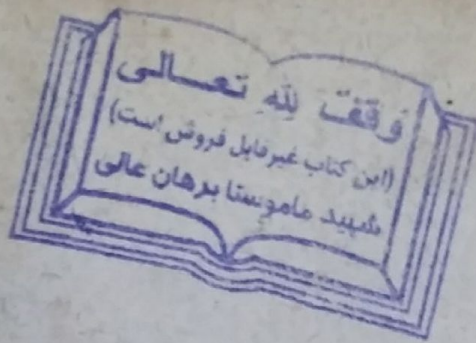 وقفت لله تعالی
(این کتاب غیرقابل فروش است)
شهید ماموستا برهان عالی